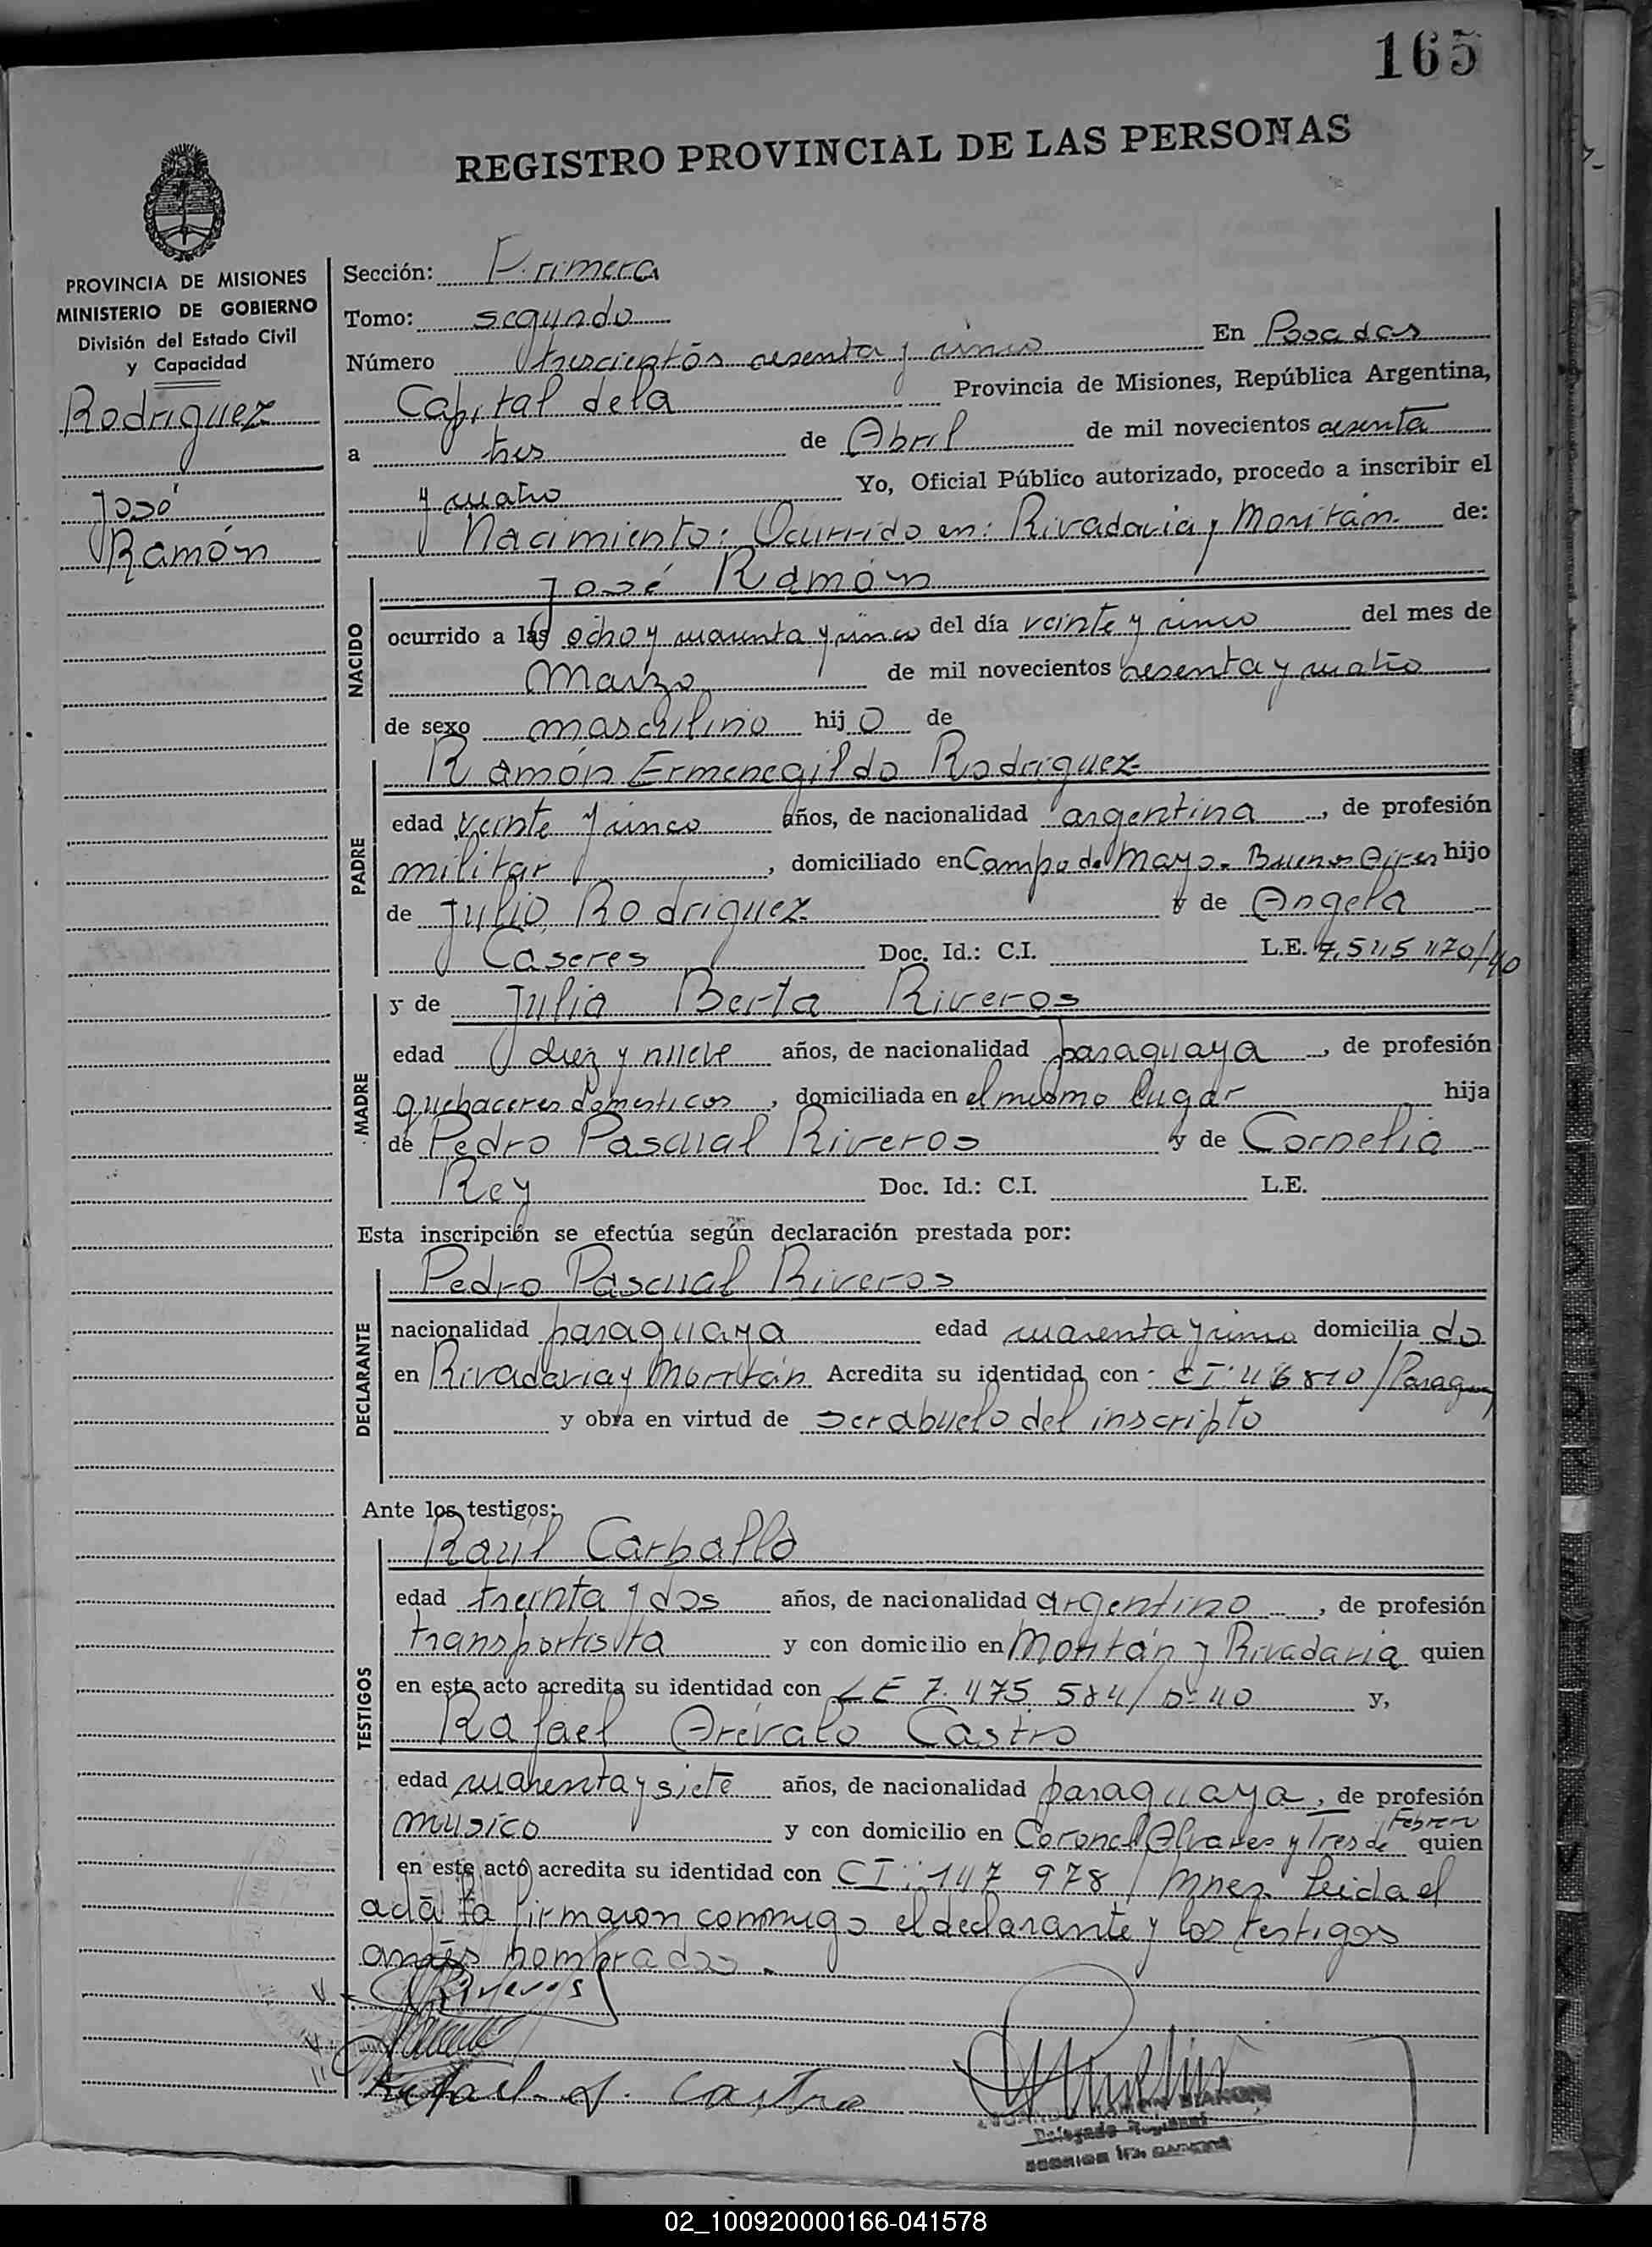 165
REGISTRO PROVINCIAL DE LAS PERSONAS
PROVINCIA DE MISIONES
MINISTERIO DE GOBIERNO
División del Estado Civil
y Capacidad
Rodriguez
José
Ramón
Sección: Primera
Tomo: segundo
Número trescientos sesenta y cinco En Posadas
Capital de la Provincia de Misiones, República Argentina,
a tres de Abril de mil novecientos sesenta
y cuatro Yo, Oficial Público autorizado, procedo a inscribir el
Nacimiento: Ocurrido en: Rivadavia y de:
NACIDO
José Ramón
ocurrido a las ocho y cuarenta y cinco del día veinte y cinco del mes de
Marzo de mil novecientos sesenta y cuatro
de sexo masculino hij o de
PADRE
Ramón Ermenegildo Rodriguez
edad veinte y cinco años, de nacionalidad argentina, de profesión
militar, domiciliado en Campo de Mayo - Buenos Aires hijo
de Julio Rodriguez y de Angela
Caseres Doc. Id.: C.I. L.E. 7.545 470/40
MADRE
y de Julia Berta Riveros
edad diez y nueve años, de nacionalidad paraguaya, de profesión
quehaceres domesticos, domiciliada en el mismo lugar hija
de Pedro Pascual Riveros y de Cornelia
Rey Doc. Id.: C.I. L.E.
Esta inscripción se efectúa según declaración prestada por:
DECLARANTE
Pedro Pascual Riveros
nacionalidad paraguaya edad cuarenta y cinco domicilia do
en Rivadavia y Acredita su identidad con CI: 46 810 / Paraguay
y obra en virtud de ser abuelo del inscripto
Ante los testigos:
TESTIGOS
Raúl Carballo
edad treinta y dos años, de nacionalidad argentino, de profesión
transportista y con domicilio en y Rivadavia quien
en este acto acredita su identidad con LE 7.475.584/D:40 y,
Rafael Arévalo Castro
edad cuarenta y siete años, de nacionalidad paraguaya, de profesión
musico y con domicilio en Coronel Alvares y Tres de Febrero quien
en este acto acredita su identidad con CI: 147 978 / Mnes. Leida el
acta la firmaron conmigo el declarante y los testigos
antes nombrados.
Riveros
Rafael A. Castro
02_100920000166-041578